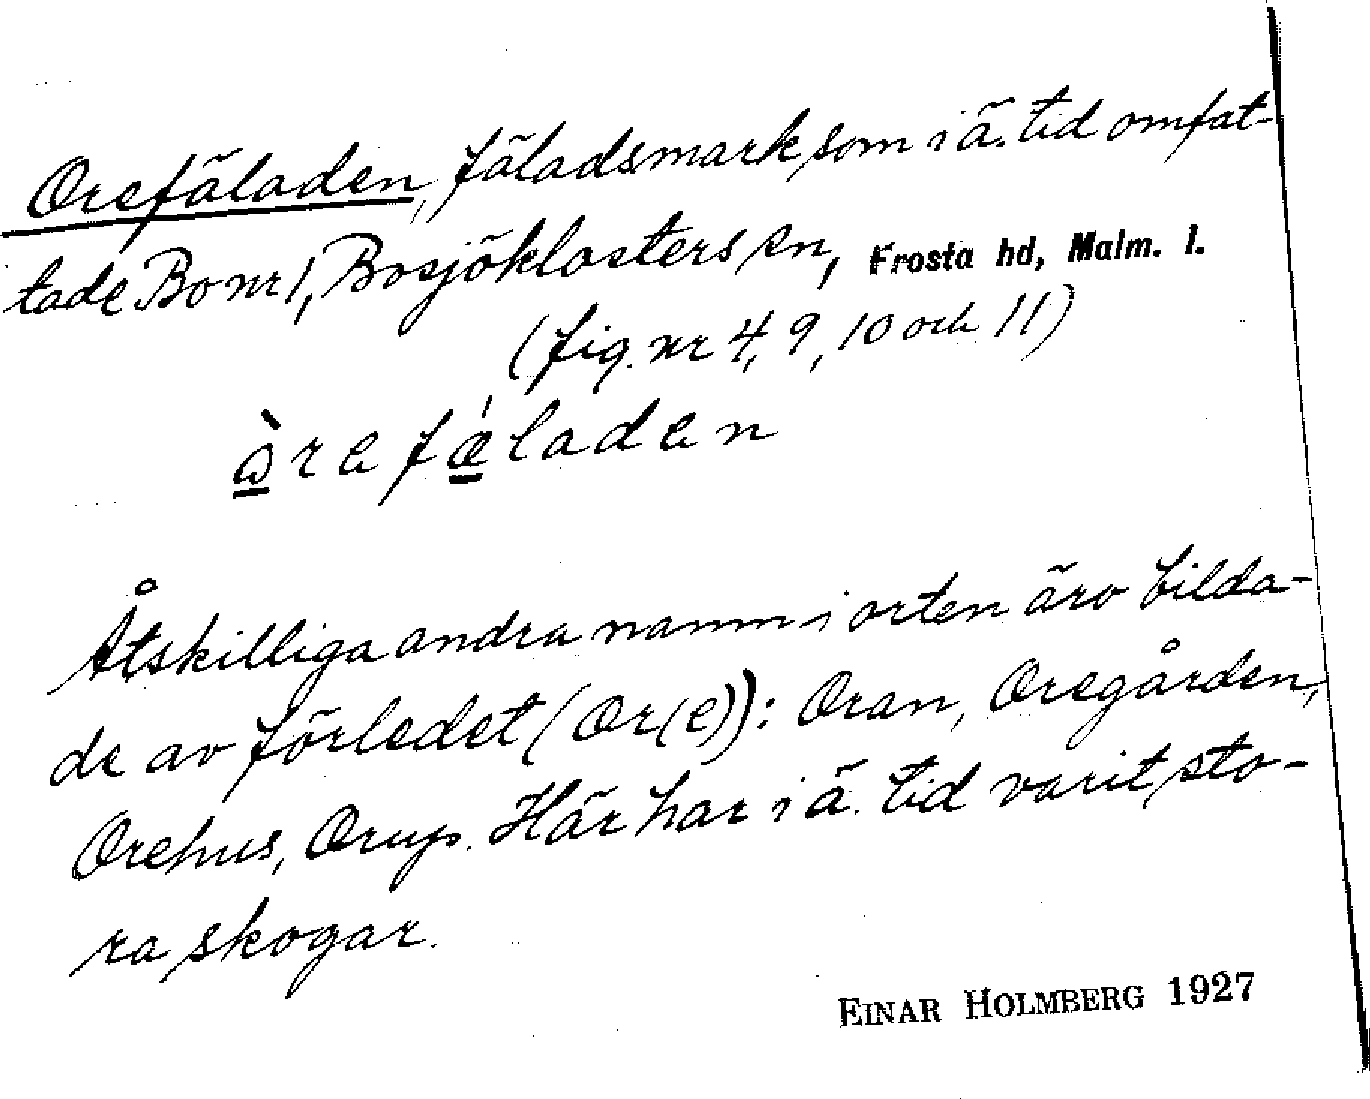 Orefäladen, fäladsmark som i ä. tid omfat-
tade Bo nr 1, Bosjöklosters sn, Frosta hd, Malm. l.
(fig. nr 4, 9, 10 och 11)
refǽ̲laden
Åtskilliga andra namn i orten äro bilda-
de av förledet (Or(e)): Oran, Oregården,
Orehus, Orup. Här har i ä. tid varit sto-
ra skogar.
EINAR HOLMBERG 1927